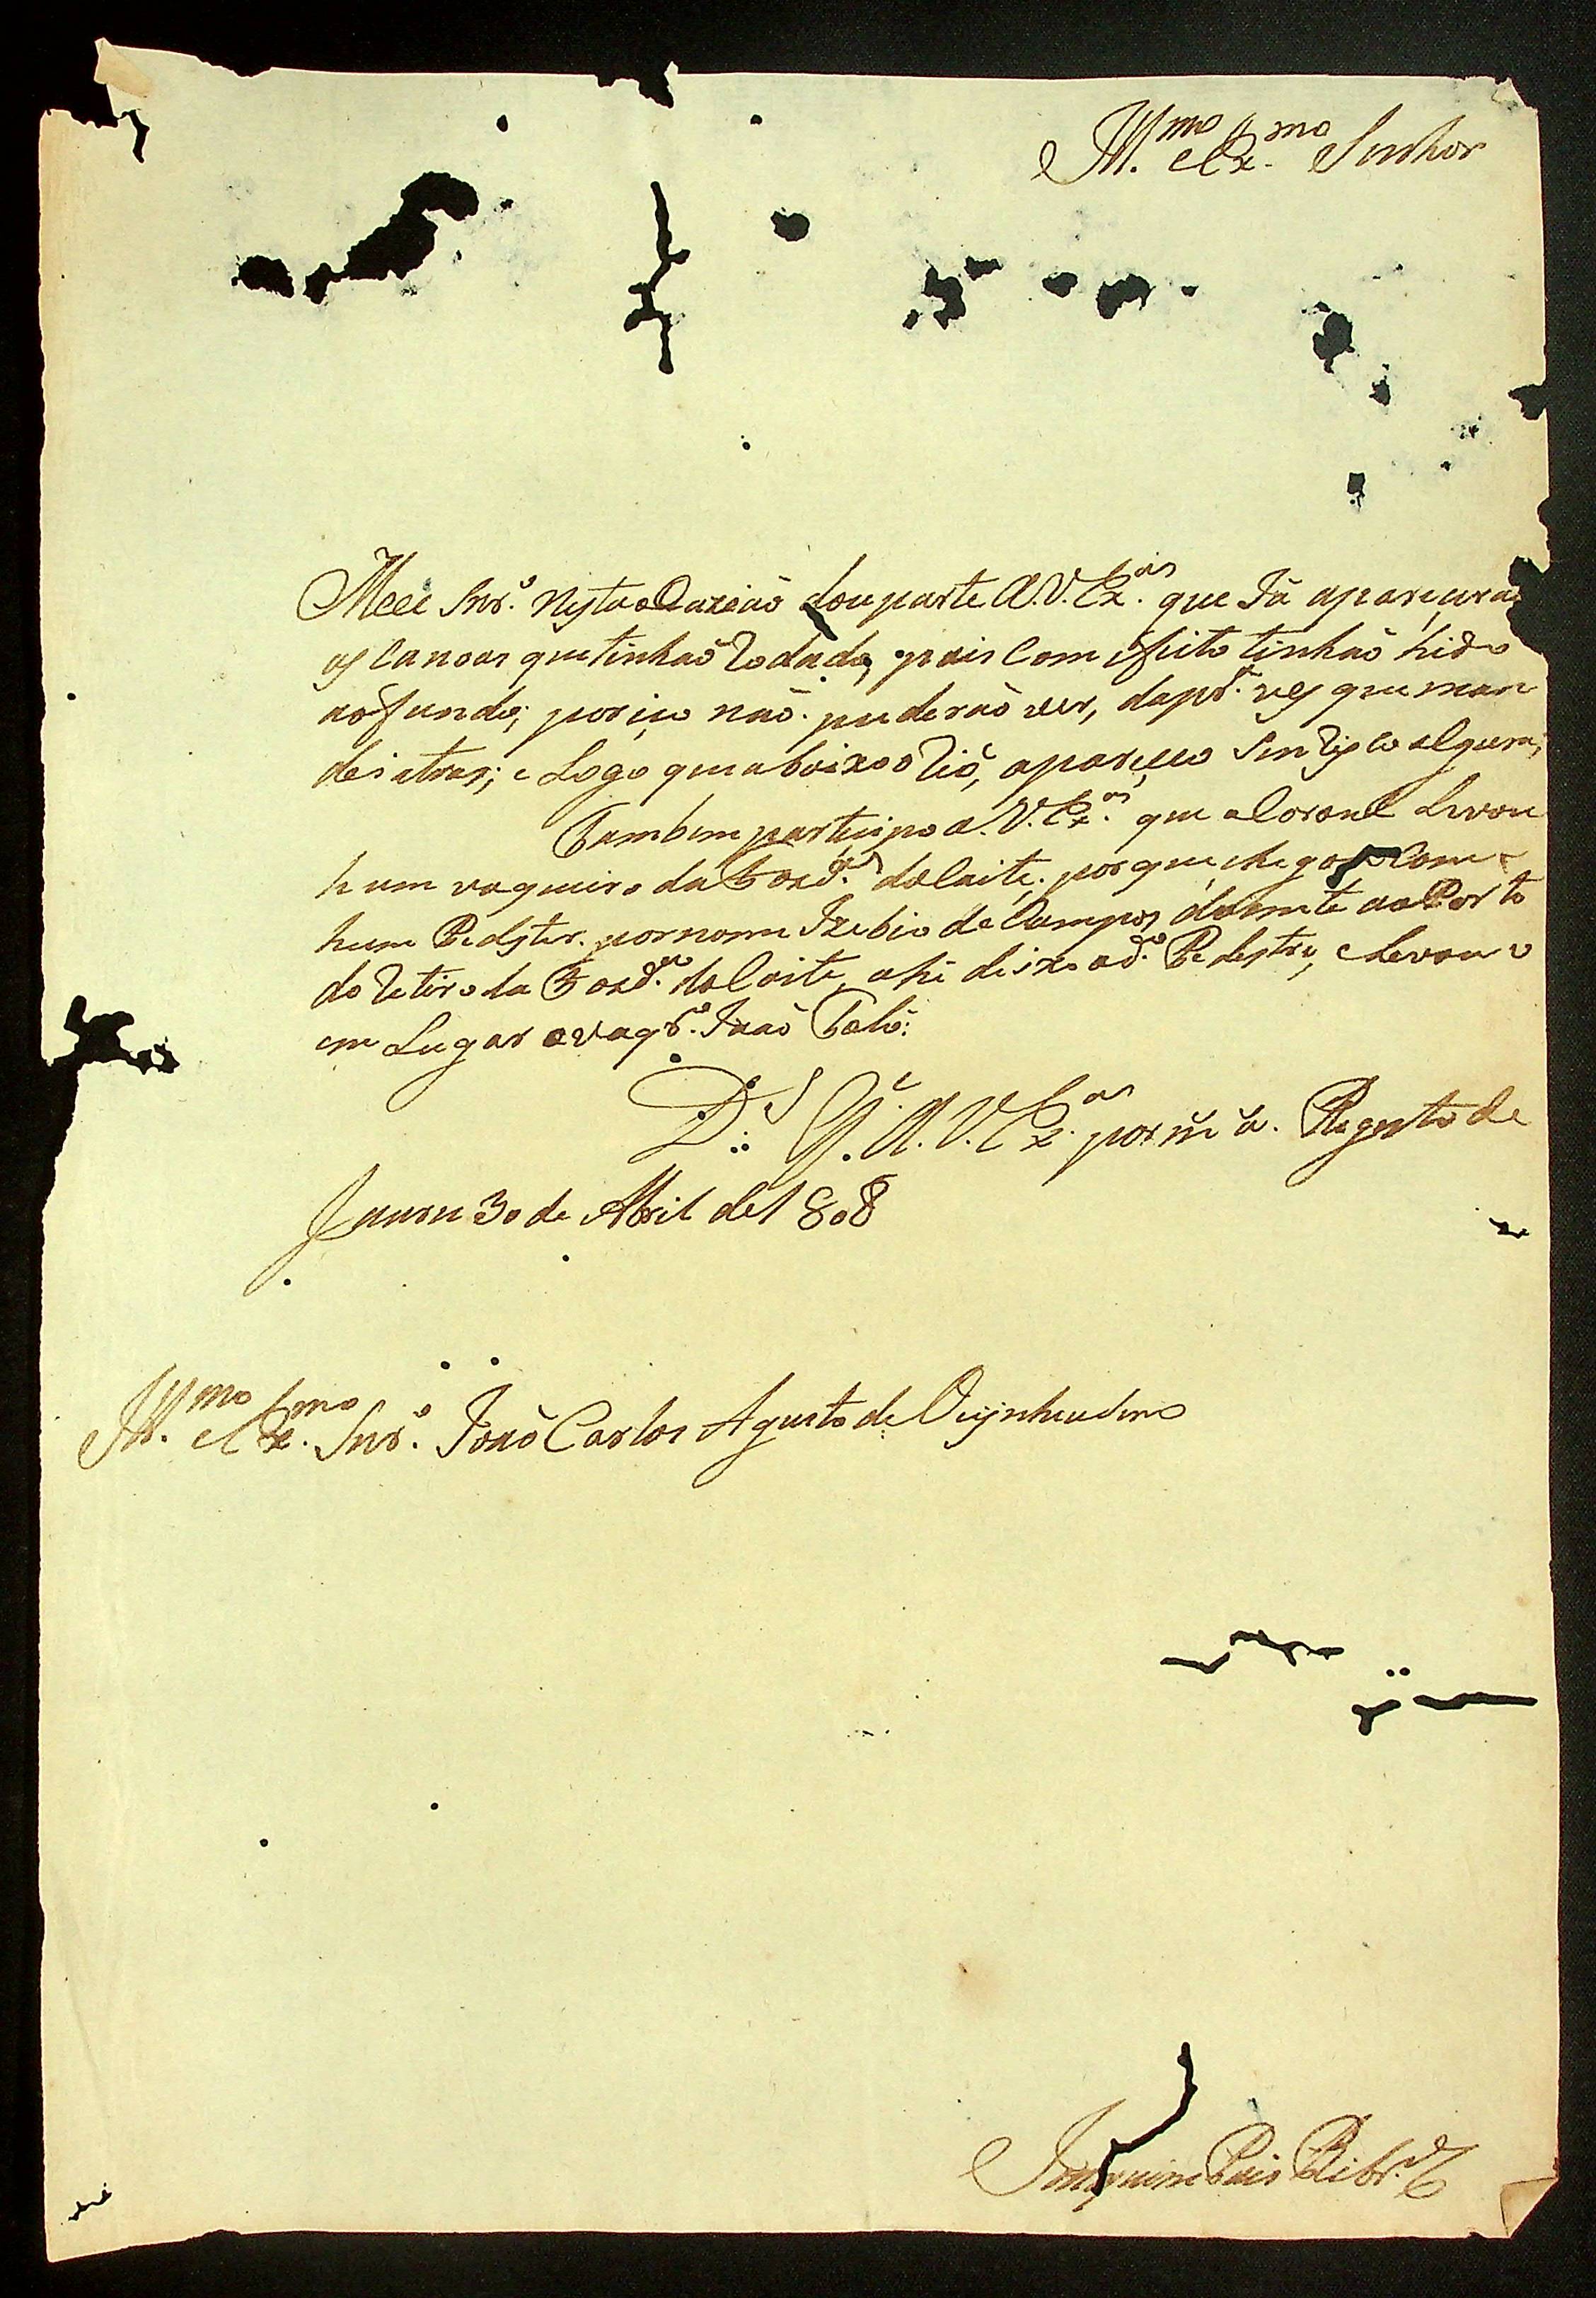 Ill.mo e Ex.mo Senhor
Meu Snr.o nesta Ocazião dou parte A. V. Ex.as que Ja aparecerão
as Canoas que tinhão Rodado, pois Com efeito tinhão hido
ao fundo; por iço não puderão ver, da pr.a ves que man
dei atras; e Logo que abaixo o Rio, apareceo
Tambem participo a. V. Ex.as que a Coroné Levou
hum vaqueiro da Fazd.a do Caite; porque, chegou Com
hum Pedster. por nome Izebio de Campos, doente ao Porto
do Retiro da Fazd.a do Caite, ahi deixo o d.o Pedestre, e Levou
em Lugar o vaqr.o Joaõ Pahé:
D.s G.e A. V. Ex.as por m.s a. Registo de
Jauru 30 de Abril de 1808
Ill.mo e Ex.mo Snr.o Joaõ Carlos Agusto de Oeÿnheudino
Joaquim Pais Ribr.o